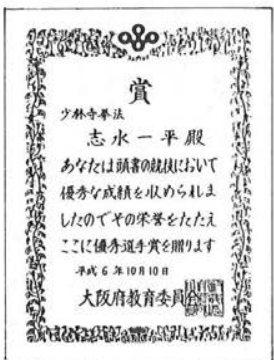 賞
少林寺拳法
志水一平殿
あなたは頭書の競技において
優秀な成績を収められま
したのでその栄誉をたたえ
ここに優秀選手賞を贈ります
平成6年10月10日
大阪府教育委員会